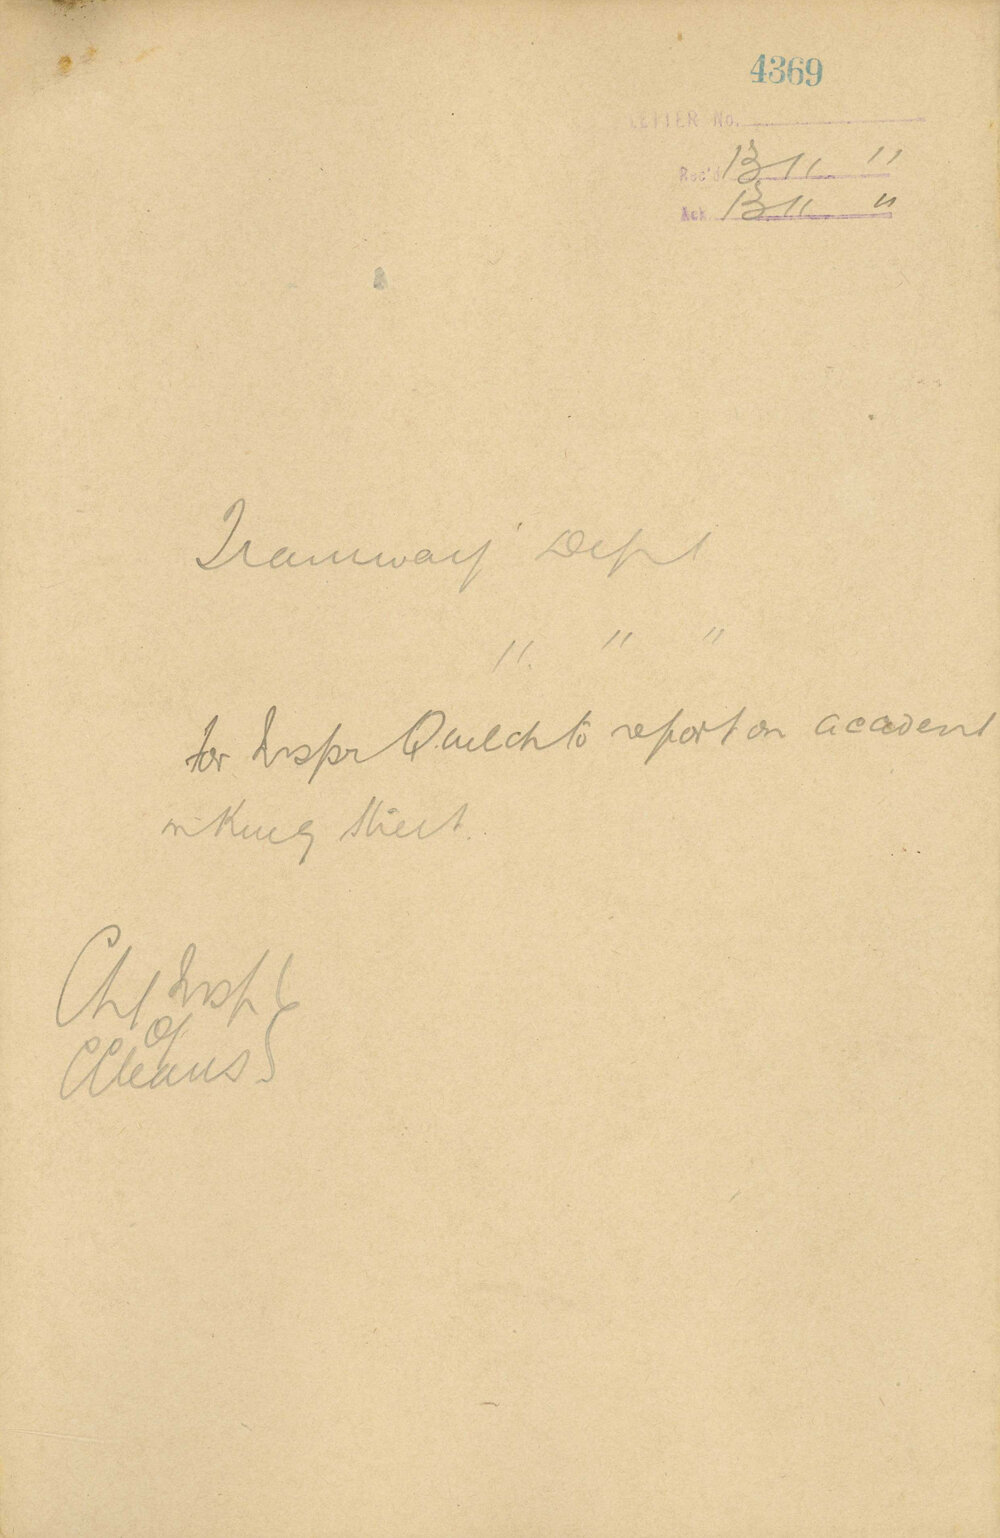 4369
LETTER No.
Rec'd 13/11 11
Ack 13/11 11
Tramway Dept
11. 11 11
for Inspr Quelch to report on accident
in King Street.
Chf Inspr
of
Cleans